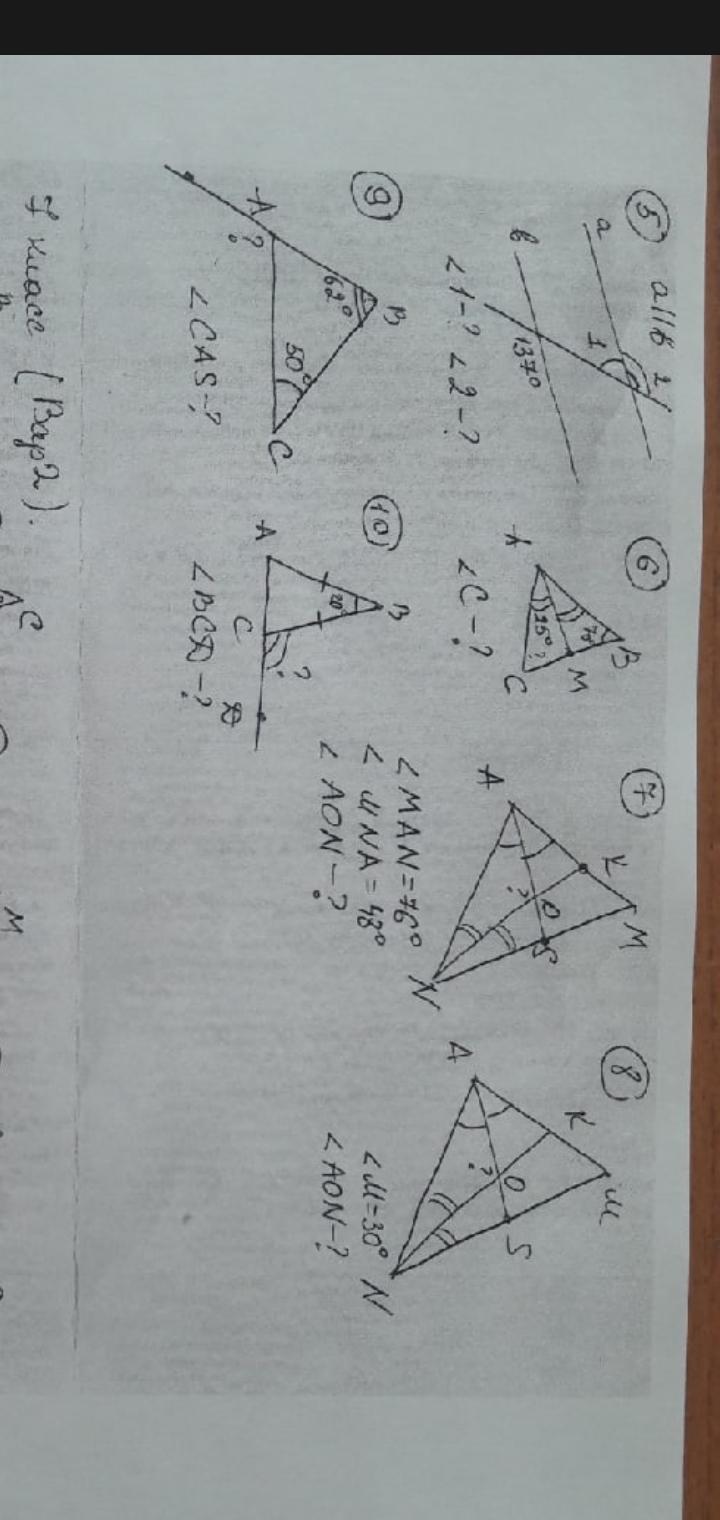 5 a||b 2
a
1
b
137°
<1-? <2-?
6
B
A
M
25° ?
C
<C-?
7
K
M
A
O
S
?
N
<MAN=76°
<MNA=48°
<AON-?
8
K
M
A
O
S
?
N
<M=30°
<AON-?
9
B
62°
A
?
50°
C
<CAS-?
10
B
A
C
?
D
<BCD-?
7 класс (Вар2).
C
M